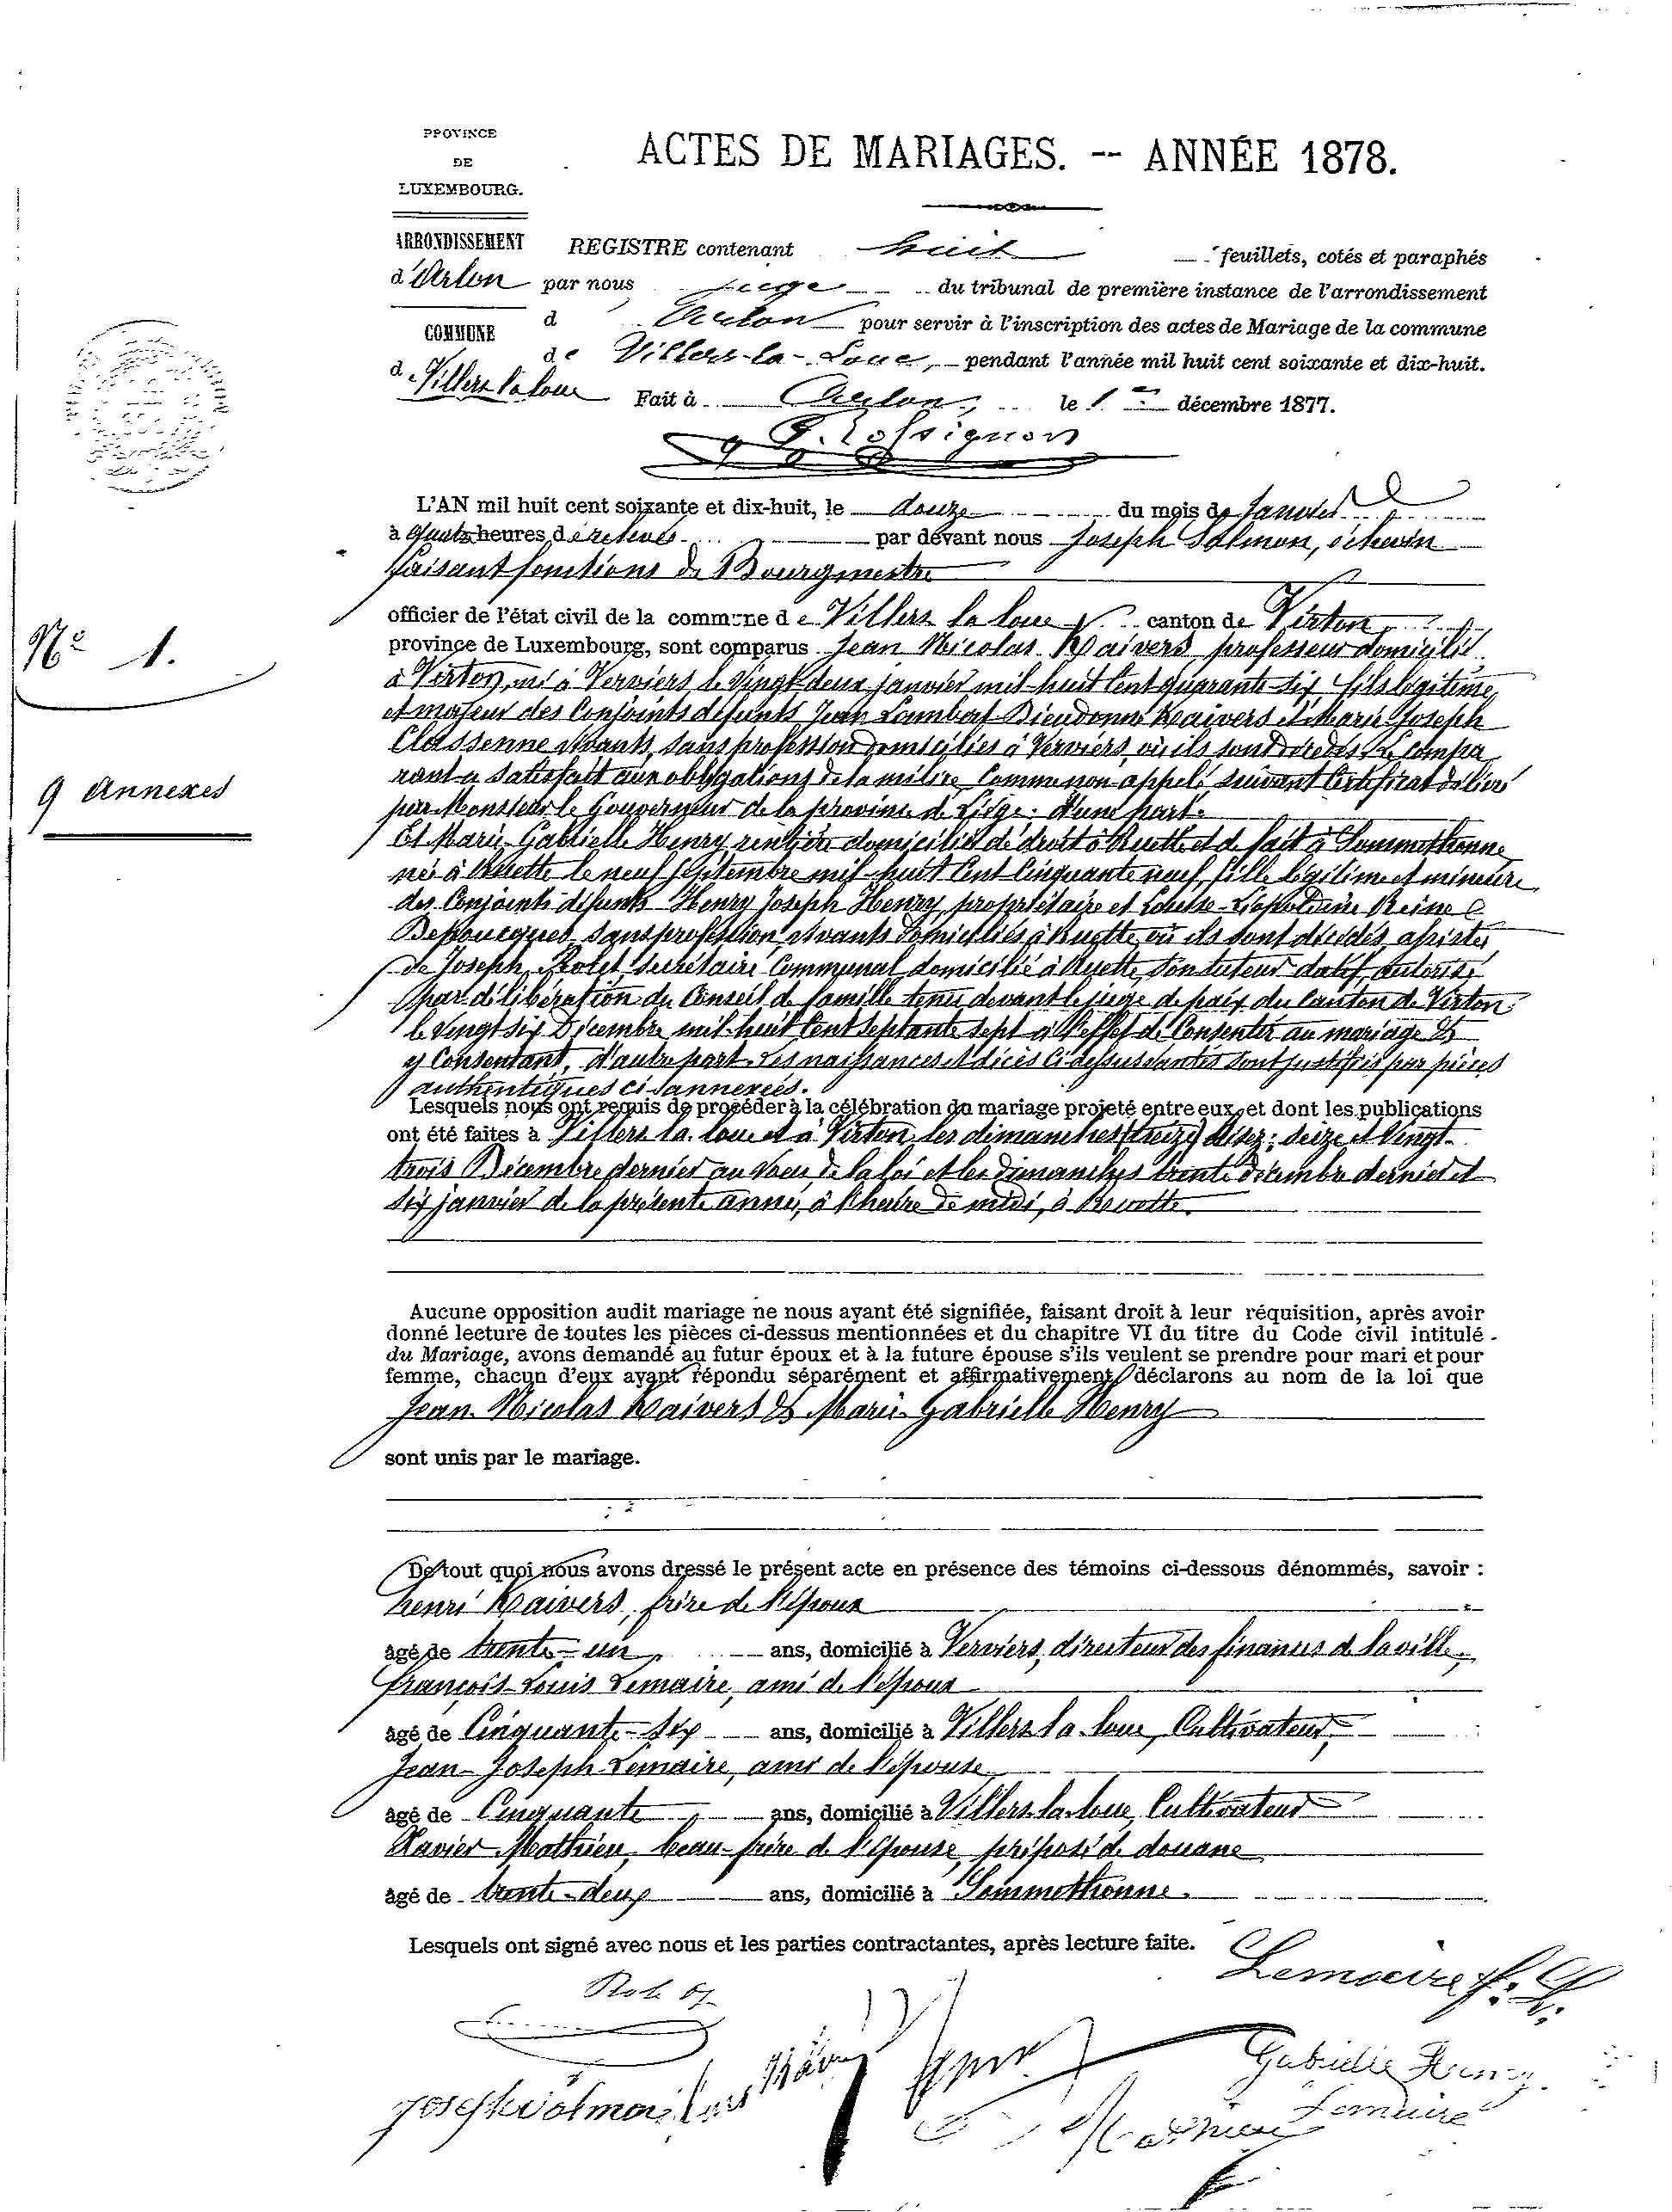 PROVINCE
DE
LUXEMBOURG.
ACTES DE MARIAGES. -- ANNÉE 1878.
ARRONDISSEMENT
d'Arlon
COMMUNE
d. Villers la loue
REGISTRE contenant huit feuillets, cotés et paraphés
par nous juge du tribunal de première instance de l'arrondissement
d Arlon pour servir à l'inscription des actes de Mariage de la commune
de Villers-la-Loue, pendant l'année mil huit cent soixante et dix-huit.
Fait à Arlon, le 1er décembre 1877.
L'AN mil huit cent soixante et dix-huit, le douze du mois de Janvier
à quatre heures de relevée par devant nous Joseph Salmon, échevin
faisant fonctions de Bourgmestre
officier de l'état civil de la commune de Villers la loue canton de Virton
province de Luxembourg, sont comparus Jean Nicolas Kaivers, professeur domicilié
à Virton, né à Verviers le vingt deux janvier mil huit cent quarante-six fils légitime
et majeur des conjoints défunts Jean Lambert Dieudonné Kaivers et Marie Joseph
Classenne vivants, sans profession domiciliés à Verviers, où ils sont décédés. Le compa
rant a satisfait aux obligations de la milice comme non appelé suivant certificat délivré
par Monsieur le Gouverneur de la province de Liège. d'une part.
Et Marie-Gabrielle Henry rentière domiciliée de droit à Ruette et de fait à Sommethonne
née à Ruette le neuf septembre mil-huit cent cinquante neuf, fille légitime et mineure
des conjoints défunts Henry Joseph Henry, propriétaire et Louise-Léopoldine Reine
sans profession vivants domiciliés à Ruette où ils sont décédés, assistée
de Joseph Rolet secrétaire communal domicilié à Ruette, son tuteur datif, autorisé
par délibération du Conseil de famille tenu devant le juge de paix du canton de Virton
le vingt six Décembre mil-huit cent septante sept à l'effet de consentir au mariage &
y consentant, d'autre part. Les naissances et décès ci dessus relatés sont justifiés par pièces
authentiques ci annexées.
Lesquels nous ont requis de procéder à la célébration du mariage projeté entre eux, et dont les publications
ont été faites à Villers la loue et à Virton les dimanches (treize) disez: seize et vingt-
trois Décembre dernier au vœu de la loi et les Dimanches trente décembre dernier et
six janvier de la présente année, à l'heure de midi, à Ruette.
Aucune opposition audit mariage ne nous ayant été signifiée, faisant droit à leur réquisition, après avoir
donné lecture de toutes les pièces ci-dessus mentionnées et du chapitre VI du titre du Code civil intitulé
du Mariage, avons demandé au futur époux et à la future épouse s'ils veulent se prendre pour mari et pour
femme, chacun d'eux ayant répondu séparément et affirmativement, déclarons au nom de la loi que
Jean Nicolas Kaivers & Marie-Gabrielle Henry
sont unis par le mariage.
De tout quoi nous avons dressé le présent acte en présence des témoins ci-dessous dénommés, savoir :
henri Kaivers, frère de l'époux
âgé de trente-un ans, domicilié à Verviers, directeur des finances de la ville
françois-Louis Lemaire, ami de l'époux
âgé de Cinquante-six ans, domicilié à Villers la-loue, Cultivateur
Jean-Joseph Lemaire, ami de l'épouse
âgé de Cinquante ans, domicilié à Villers la loue, Cultivateur
Xavier Mathieu, beau-frère de l'épouse, préposé de douane
âgé de trente-deux ans, domicilié à Sommethonne.
Lesquels ont signé avec nous et les parties contractantes, après lecture faite.
Lemaire f. L.
Rolet
Gabrielle Henry
Joseph Salmon
Lemaire
Mathieu
No 1.
9 Annexes